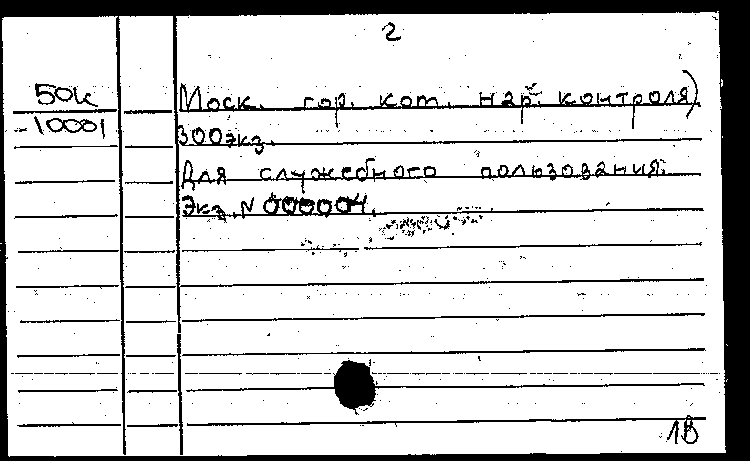 2
50к Моск. гор. ком. нар. контроля).
-10001 300экз.
Для служебного пользования.
Экз. N 000004.
1В